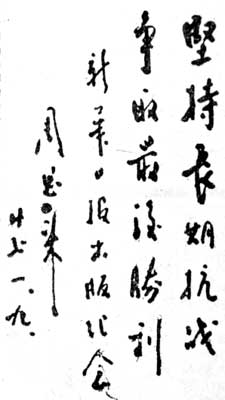 堅持長期抗战
争取最後勝利
新華日报出版纪念
周恩来
廿七一、九、